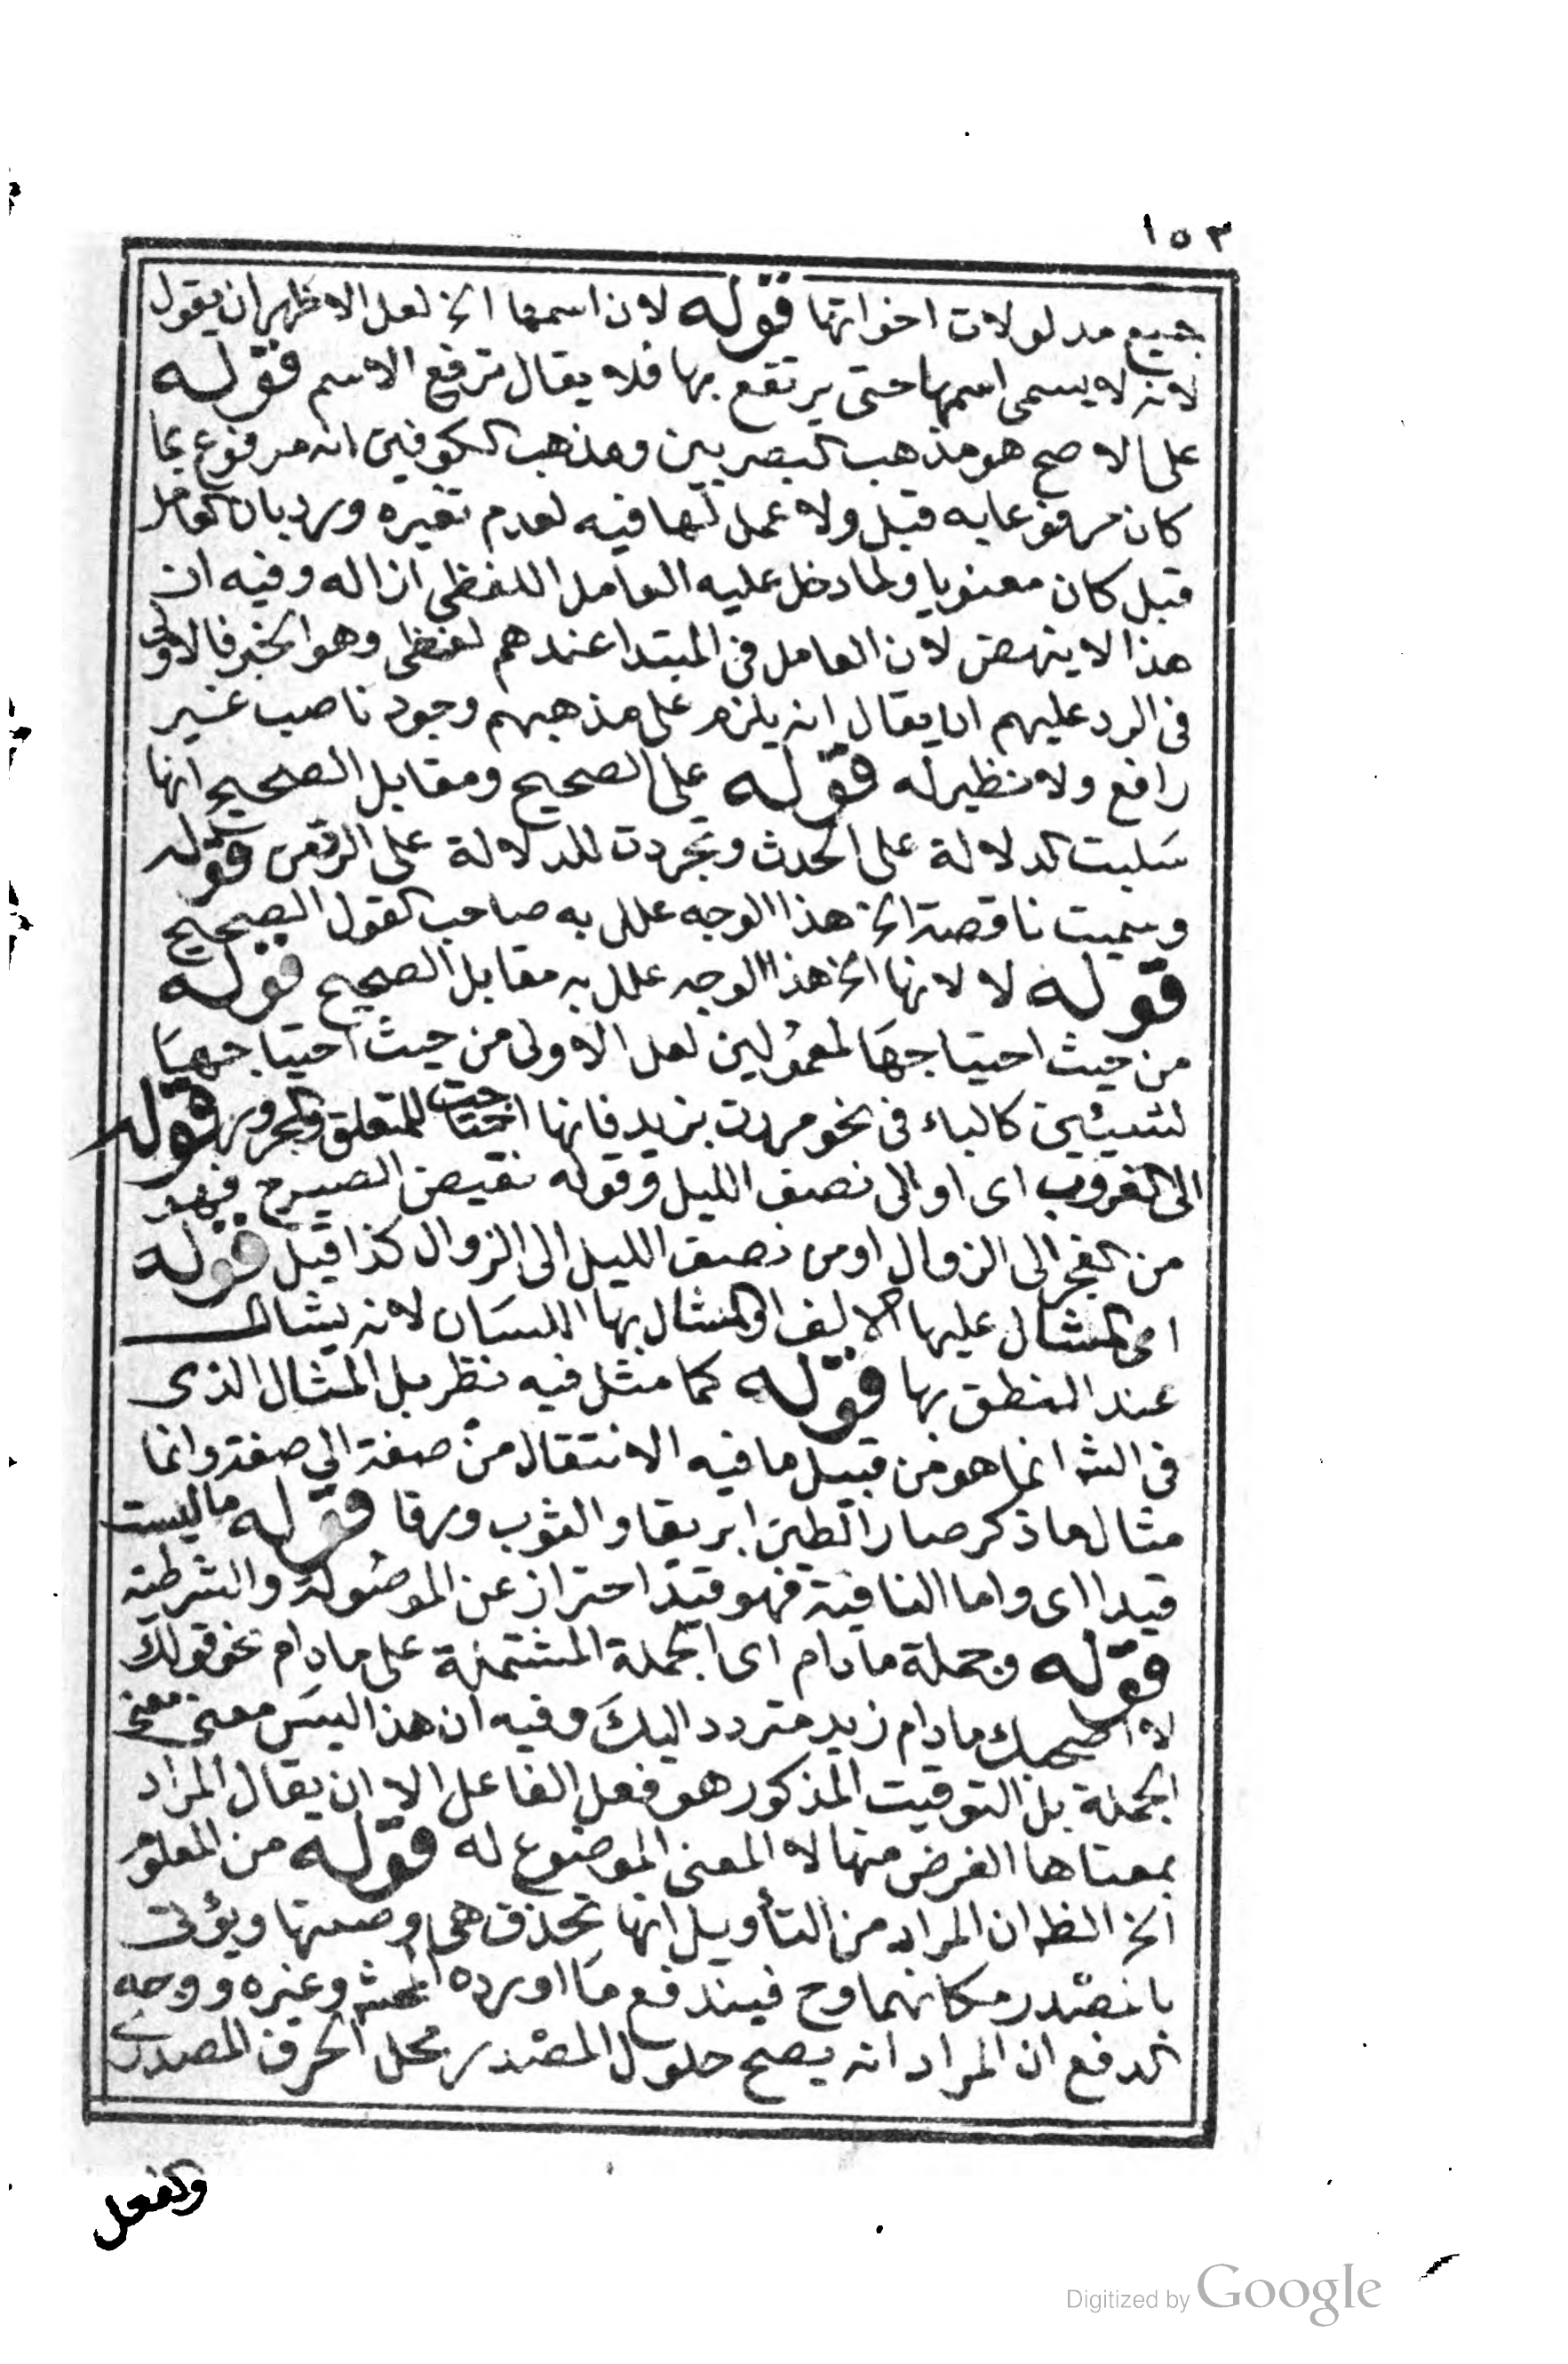 ١٥٣
جميع مدلولات اخواتها قوله لان اسمها الخ لعل الاظهر ان يقول
لانه لا يسمى اسمها حتى يرتفع بها فلا يقال ترفع الاسم قوله
على الاصح هو مذهب البصريين ومذهب الكوفيين انه مرفوع بما
كان مرفوعا به قبل ولا عمل لها فيه لعدم تغيره ورد بان العامل
قبل كان معنويا ولما دخل عليه العامل اللفظى ازاله وفيه ان
هذا لا ينهض لان العامل فى المبتدا عندهم لفظى وهو الخبر فالاولى
فى الرد عليهم ان يقال انه يلزم على مذهبهم وجود ناصب غير
رافع ولا نظير له قوله على الصحيح ومقابل الصحيح انها
سلبت الدلالة على الحدث وتجردت للدلالة على الزمن قوله
وسميت ناقصة الخ هذا الوجه علل به صاحب القول الصحيح
قوله لا لانها الخ هذا الوجه علل به مقابل الصحيح قوله
من حيث احتياجها لمعمولين لعل الاولى من حيث احتياجها
لشيئين كالباء فى نحو مررت بزيد فانها احتاجت للمتعلق والمجرور قوله
الى الغروب اى او الى نصف الليل وقوله نقيض الصبح فهو
من الفجر الى الزوال او من نصف الليل الى الزوال كذا قيل قوله
اى المشال عليها الالف او المشال بها اللسان لانه يشال
عند النطق بها قوله كما مثل فيه نظر بل المثال الذى
فى الشر انما هو من قبيل ما فيه الانتقال من صفة الى صفة وانما
مثال ما ذكر صار الطين ابريقا والثوب ورقا قوله ما ليست
قيدا اى واما النافية فهو قيد احتراز عن الموصولة والشرطية
قوله وجملة مادام اى الجملة المشتملة على مادام نحو قولك
لا اصحبك مادام زيد متردد اليك وفيه ان هذا ليس معنى معنى
الجملة بل التوقيت المذكور هو فعل الفاعل الا ان يقال المراد
بمعناها الغرض منها لا المعنى الموضوع له قوله من المعلوم
الخ الظ ان المراد من التأويل انها تحذف هى وصلتها ويؤتى
بالمصدر مكانهما وح فيندفع ما اورده المحشى وغيره ووجه
الدفع ان المراد انه يصح حلول المصدر محل الحرف المصدرى
والفعل
Digitized by Google